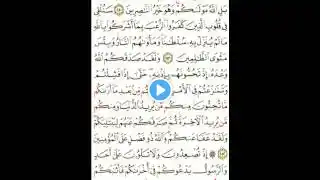 بَلِ ٱللَّهُ مَوْلَىٰكُمْ وَهُوَ خَيْرُ ٱلنَّٰصِرِينَ ١٥٠ سَنُلْقِى
فِى قُلُوبِ ٱلَّذِينَ كَفَرُوا۟ ٱلرُّعْبَ بِمَآ أَشْرَكُوا۟ بِٱللَّهِ
مَا لَمْ يُنَزِّلْ بِهِۦ سُلْطَٰنًا وَمَأْوَىٰهُمُ ٱلنَّارُ وَبِئْسَ
مَثْوَى ٱلظَّٰلِمِينَ ١٥١ وَلَقَدْ صَدَقَكُمُ ٱللَّهُ
وَعْدَهُۥٓ إِذْ تَحُسُّونَهُم بِإِذْنِهِۦ حَتَّىٰٓ إِذَا فَشِلْتُمْ
وَتَنَٰزَعْتُمْ فِى ٱلْأَمْرِ مِّنۢ بَعْدِ مَآ أَرَىٰكُم
مَّا تُحِبُّونَ مِنكُم مَّن يُرِيدُ ٱلدُّنْيَا وَمِنكُم
مَّن يُرِيدُ ٱلْءَاخِرَةَ ثُمَّ صَرَفَكُمْ عَنْهُمْ لِيَبْتَلِيَكُمْ
وَلَقَدْ عَفَا عَنكُمْ وَٱللَّهُ ذُو فَضْلٍ عَلَى ٱلْمُؤْمِنِينَ
١٥٢ إِذْ تُصْعِدُونَ وَلَا تَلْوُۥنَ عَلَىٰٓ أَحَدٍ
وَٱلرَّسُولُ يَدْعُوكُمْ فِىٓ أُخْرَىٰكُمْ فَأَثَٰبَكُمْ